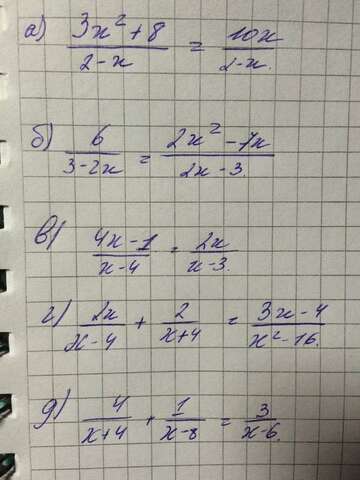 а) (3x² + 8)/(2 - x) = 10x/(2 - x).
б) 6/(3 - 2x) = (2x² - 7x)/(2x - 3.)
в) (4x - 1)/(x - 4) = 2x/(x - 3.)
г) 2x/(x - 4) + 2/(x + 4) = (3x - 4)/(x² - 16.)
д) 4/(x + 4) + 1/(x - 8) = 3/(x - 6.)